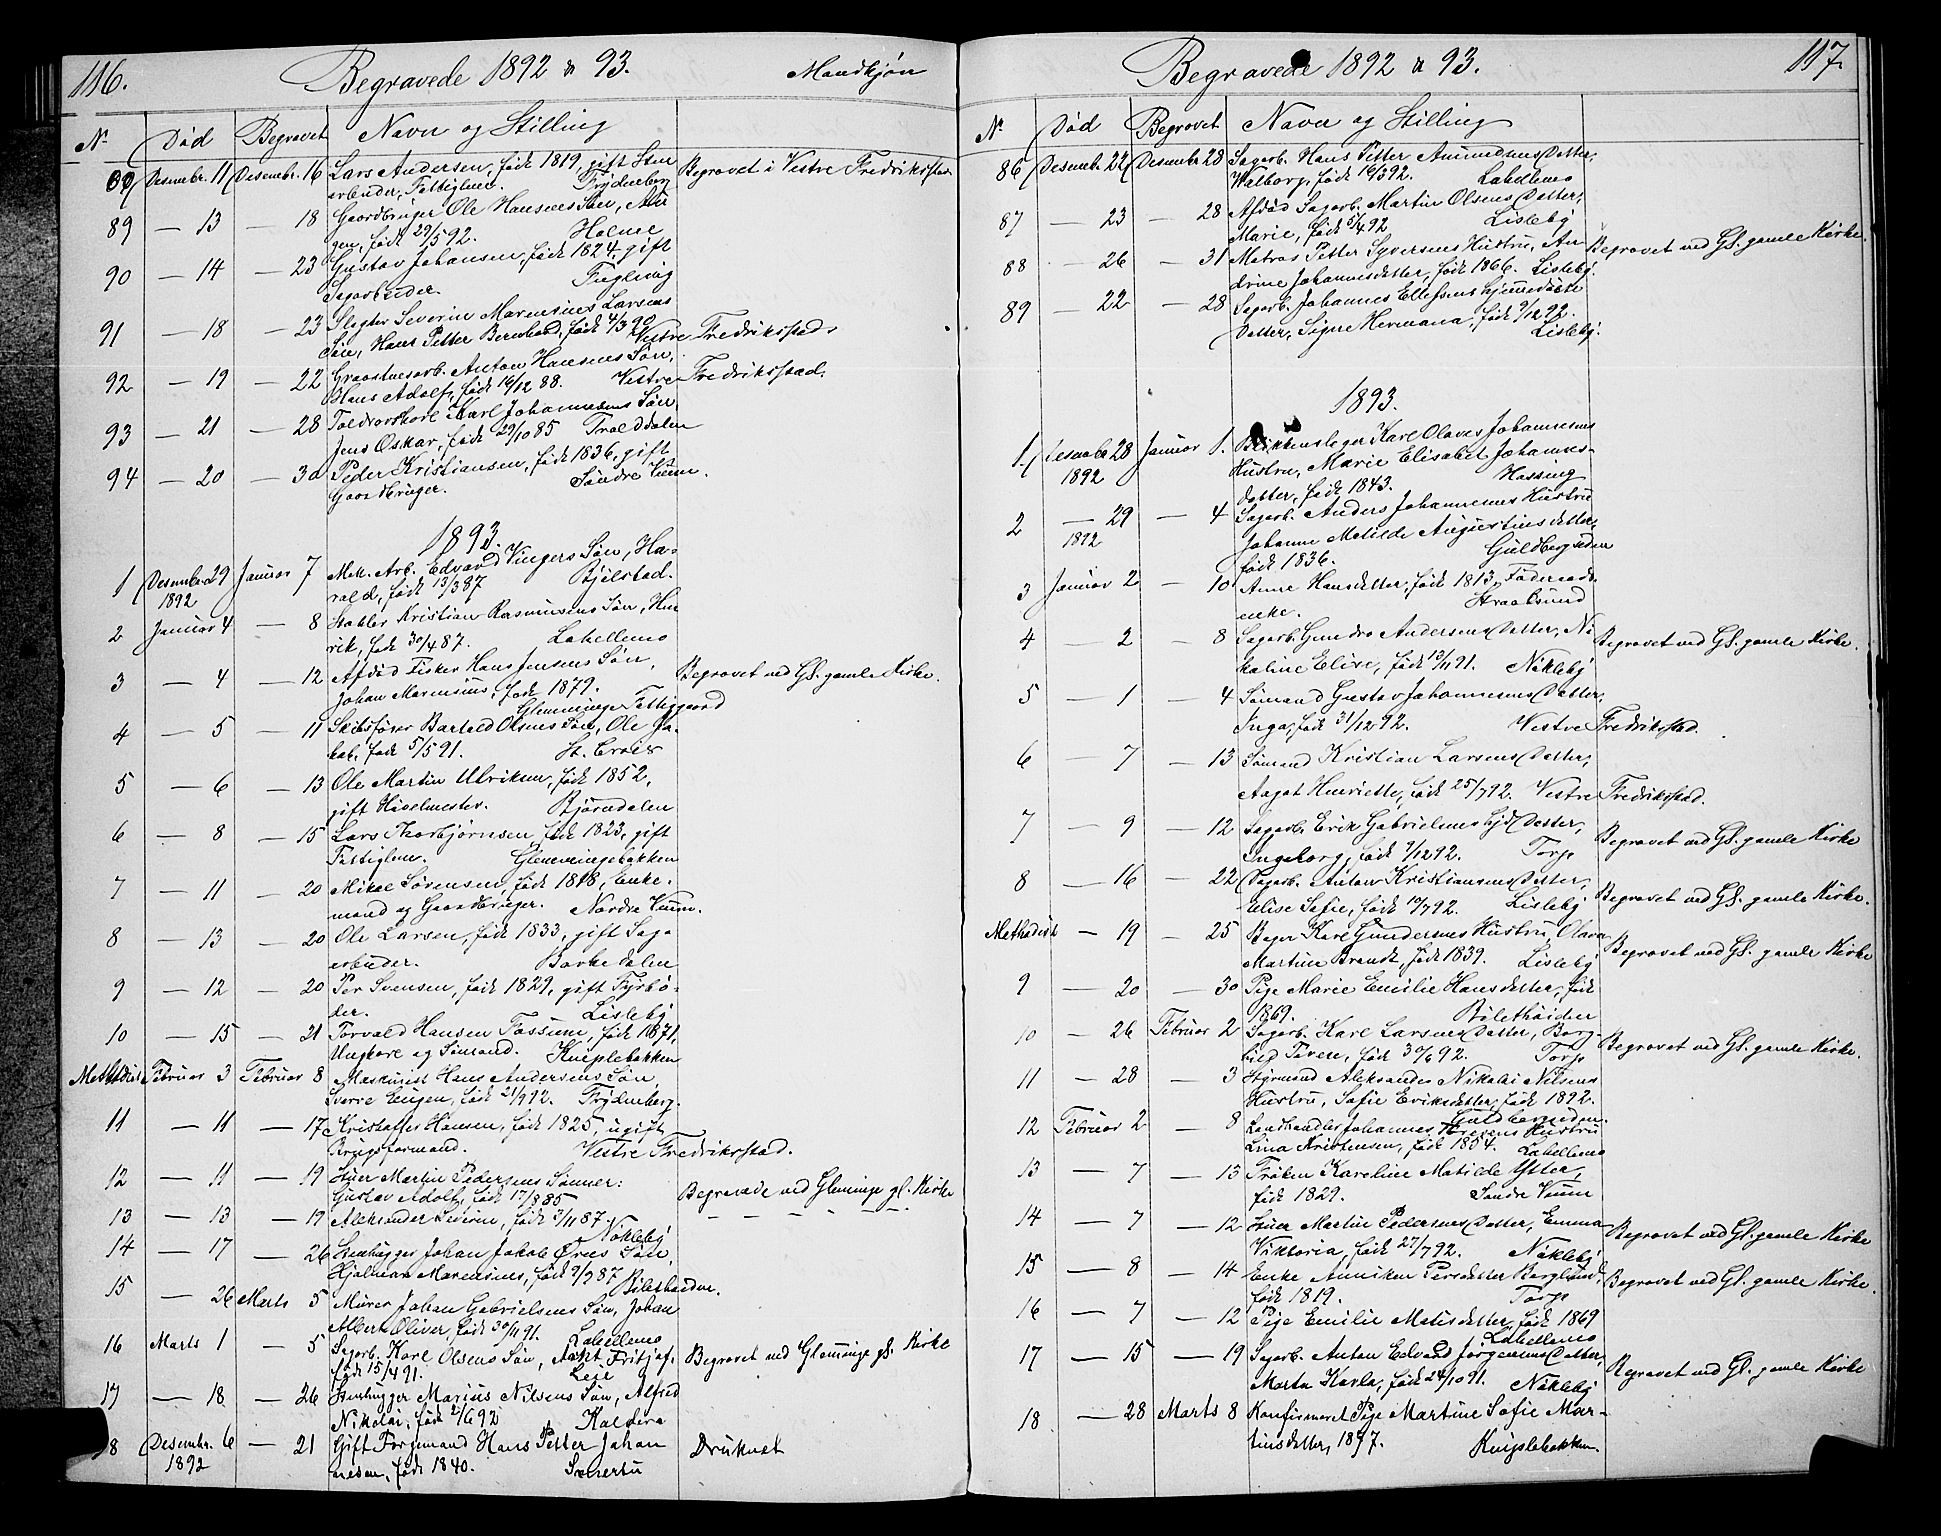 116.
Begravede 1892 & 93.
Mandkjøn
No
Død
Begravet
Navn og Stilling
Desembr. 11 Desembr. 16 Lars Andersen, født 1819, gift Sten
Begravet i Vestre Fredriksstad
arbeider, Fattiglem. Frydenberg
89 — 13 — 18 Gaardbruger Ole Hansens Søn,
gen, født 29/5 92. Holme
90 — 14 — 23 Gustav Johansen, født 1824, gift
Sagarbeider. Fuglevig
91 — 18 — 23 Slagter Severin Marensius Larsens
Søn, Hans Petter Bernhard, født 4/3 90 Vestre Fredriksstad
92 — 19 — 22 Graastensarb. Anton Hansens Søn,
Hans Adolf, født 16/12 88. Vestre Fredriksstad.
93 — 21 — 28 Toldrorskarl Karl Johannesens Søn,
Jens Oskar, født 29/10 85 Træddalen
94 — 20 — 30 Peder Kristiansen, født 1836, gift
Gaardbruger. Søndre Vuum.
1893.
1 Desembr 29 Januar 7 Mek. Arb. Edvard Vingers Søn, Ha-
1892 rald, født 13/3 87 Bjølstad.
2 Januar 4 — 8 Stabler Kristian Rasmussens Søn, Hen
rik, født 30/4 87. Labellemo
3 — 4 — 12 Afdød Fisker Hans Jensens Søn,
Begravet ved Gl. gamle Kirke.
Johan Marensius, født 1879.
Glemminge Fattiggaard
4 — 5 — 11 Skibsfører Barteld Olsens Søn, Ole Ja-
kob, født 5/5 91. St. Croix
5 — 6 — 13 Ole Martin Ulriksen, født 1852,
gift Høvelmester. Bjørndalen
6 — 8 — 15 Lars Thorbjørnsen, født 1823, gift
Fattiglem. Glemmingebakken
7 — 11 — 20 Mikal Sørensen, født 1818, Enke-
mand og Gaardbruger. Nordre Vuum.
8 — 13 — 20 Ole Larsen, født 1833, gift Sag-
arbeider. Borkedalen
9 — 12 — 20 Per Svensen, født 1829, gift Fyrbø-
der. Lisleby
10 — 15 — 21 Torvald Hansen Fossum, født 1871,
Ungkarl og Sømand. Kniplebakken
Methodist Februar 3 Februar 8 Maskinist Hans Andersens Søn,
Sverre Eugen, født 21/9 92. Frydenberg.
11 — 11 — 17 Kristoffer Hansen, født 1825, ugift
Brugsformand. Vestre Fredriksstad.
12 — 11 — 19 Huer Martin Pedersens Sønner:
Gustav Adolf, født 17/8 85
Begravede ved Glemminge gl. Kirke
13 — 13 — 19 Aleksander Severin, født 3/11 87
Nøkleby
14 — 17 — 26 Stenhugger Johan Jakob Ørnes Søn,
Hjalmar Marensius, født 9/9 87
15 — 26 Marts 5 Murer Johan Gabrielsens Søn, Johan
Albert Oliver, født 30/11 91. Labellemo
16 Marts 1 — 5 Sagarb. Karl Olsens Søn, Fritjof,
født 15/4 91. Leie
Begravet ved Glemminge gl. Kirke
17 — 18 — 26 Stenhugger Marius Nilsens Søn, Alfred
Nikolai, født 2/6 92 Kaldera
18 Desembr. 6 — 21 Gift Formand Hans Petter Johan
Druknet
1892 nesen, født 1840.
117.
Begravede 1892 & 93.
No
Død
Begravet
Navn og Stilling
86 Desembr. 22 Desembr 28 Sagarb. Hans Petter Amundsens Datter,
Walborg, født 16/3 92. Labellemo
87 — 23 — 28 Afdød Sagarb. Martin Olsens Datter,
Marie, født 5/4 92 Lisleby
88 — 26 — 31 Matros Petter Syversens Hustru, An
Begravet ved Gl. gamle Kirke.
drine Johannesdatter, født 1866. Lisleby.
89 — 22 — 28 Sagarb. Johannes Ellefsens hjemmedøbte
Datter, Signe Hermana, født 9/12 92.
Lisleby.
1893.
1 Desembr 28 Januar 1. Blikkenslager Karl Olaves Johannesens
1892 Hustru, Marie Elisabet Johannes-
datter, født 1843. Hassing
2 — 29 — 4 Sagarb. Anders Johannesens Hustru
1892 Johanne Matilde Augustinusdatter,
født 1836. Guldbergseden
3 Januar 2 — 10 Anne Hansdatter, født 1813, Føderaads-
enke. Straalsund
4 — 2 — 8 Sagarb. Gundro Andersens Datter, Ni
Begravet ved Gl. gamle Kirke.
kaline Elise, født 13/11 91. Nøkleby
5 — 1 — 4 Sømand Gustav Johannesens Datter,
Inga, født 31/12 92. Vestre Fredriksstad.
6 — 7 — 13 Sømand Kristian Larsens Datter,
Aagot Henriette, født 25/7 92. Vestre Fredriksstad.
7 — 9 — 12 Sagarb. Erik Gabrielsens hjd Datter,
Begravet ved Gl. gamle Kirke
Ingeborg, født 9/12 92. Torp
8 — 16 — 22 Sagarb. Anton Kristiansens Datter,
Begravet ved Gl. gamle Kirke.
Elise Sofie, født 10/7 92. Lisleby
Methodist — 19 — 25 Bager Karl Gundersens Hustru, Olava
Begravet ved Gl. gamle Kirke
Martine Brandt, født 1839. Lisleby
9 — 20 — 30 Pige Marie Emilie Hansdatter, født
1869.
10 — 26 Februar 2 Sagarb. Karl Larsens Datter, Borg-
Begravet ved Gl. gamle Kirke.
hild Toven, født 30/6 92. Torp
11 — 28 — 3 Styrmand Aleksander Nikolai Nilsens
Hustru, Sofie Eriksdatter, født 1892.
12 Februar 2 — 8 Landhandler Johannes Hustru
Lina Kristensen, født 1854. Labellemo
13 — 7 — 13 Frøken Karoline Matilde Ytter,
født 1829. Søndre Vuum
14 — 7 — 12 Huer Martin Pedersens Datter, Emma
Begravet ved Gl. gamle Kirke
Viktoria, født 27/7 92. Nøkleby
15 — 8 — 14 Enke Anniken Persdatter Berglund,
Begravet ved Gl. gamle Kirke.
født 1819. Torp
16 — 7 — 12 Pige Emilie Matisdatter, født 1869
Labellemo
17 — 15 — 19 Sagarb. Anton Edvard Jørgensens Datter,
Begravet ved Gl. gamle Kirke
Marta Karla, født 24/10 91. Nøkleby
18 — 28 Marts 8 Konfirmeret Pige Martine Sofie Mar-
tinsdatter, 1877. Kniplebakken.